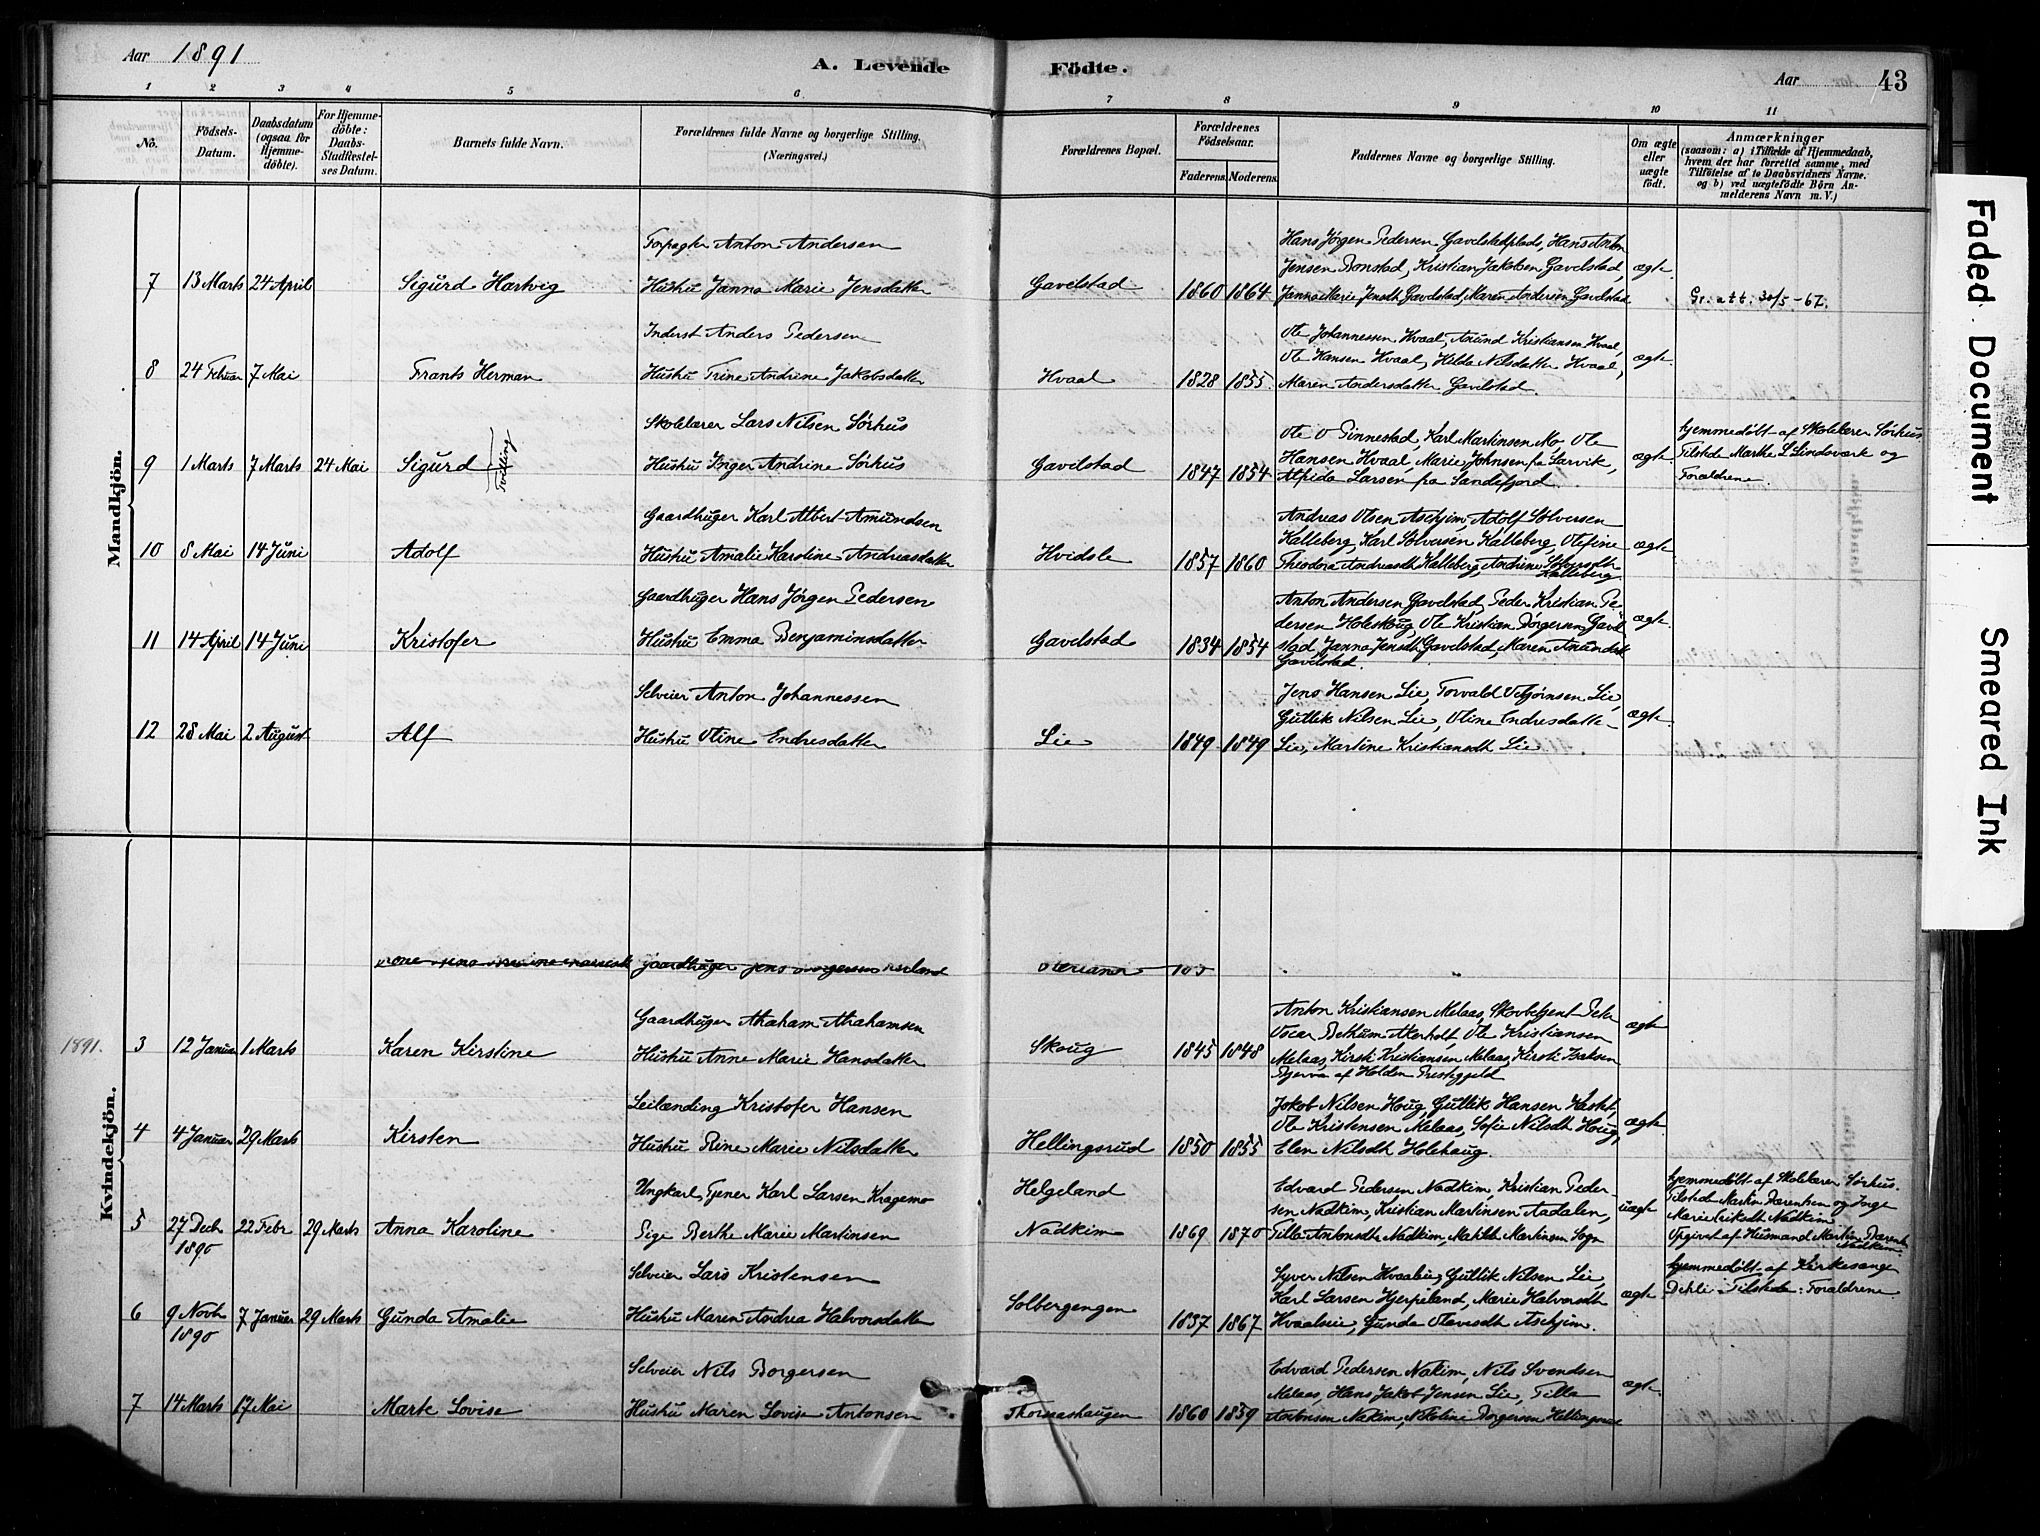 Aar 1891
A. Levende Födte.
Aar 43
1 2 3 4 5 6 7 8 9 10 11
No.
Födsels-Datum.
Daabsdatum (ogsaa for Hjemme-döbte).
For Hjemme-döbte: Daabs-Stadfæstel-ses Datum.
Barnets fulde Navn.
Forældrenes fulde Navne og borgerlige Stilling.
(Næringsvei.)
Forældrenes Bopæl.
Forældrenes Födselsaar.
Faderens. Moderens.
Faddernes Navne og borgerlige Stilling.
Om ægte eller uægte födt.
Anmærkninger
(saasom: a) i Tilfælde af Hjemmedaab, hvem der har forrettet samme, med Tilföielse af to Daabsvidners Navne. og b) ved uægtefödte Börn An-melderens Navn m. V.)
Mandkjön.
Forpagter Anton Andersen
Hans Jørgen Pedersen Gavelstadplads, Hans Anton
Jensen Bonstad, Kristian Jakobsen Gavelstad, ægte.
7 13 Marts 24 April Sigurd Hartvig Hustru Janna Marie Jensdatter Gavelstad 1860 1864 Janna Marie Jensdt Gavelstad, Maren Andersen Gavelstad Gr. att. 30/5-67.
Inderst Anders Pedersen
Ole Johannessen Hvaal, Anund Kristiansen Hvaal,
Ole Hansen Hvaal, Hilda Nilsdatter Hvaal, ægte.
8 24 Februar 7 Mai Frants Herman Hustru Trine Andrine Jakobsdatter Hvaal 1828 1855 Maren Andersdatter Gavelstad.
Skolelærer Lars Nilsen Sørhus
Ole O Pinnestad, Karl Martinsen Mo Ole
9 1 Marts 7 Marts 24 Mai Sigurd Tvilling Hustru Inger Andrine Sørhus Gavelstad 1847 1854 Hansen Hvaal, Marie Johnsen fra Larvik, ægte.
Alfida Larsen fra Sandefjord.
Hjemmedøbt af Skolelærer Sørhus
Tilstede Marthe L Lindsværk og
Forældrene.
Gaardbruger Karl Albert Amundsen
Andreas Olsen Aschjim, Adolf Solversen
Kalleberg, Karl Solversen Kalleberg, Olefine ægte
10 8 Mai 14 Juni Adolf Hustru Amalie Karoline Andreasdatter Hvidsle 1857 1860 Theodora Andreasdt Kalleberg, Andrine Solversdt
Kalleberg
Gaardbruger Hans Jørgen Pedersen
Anton Andersen Gavelstad, Peder Kristian Pe-
dersen Holeskoug, Ole Kristian Borgersen Gavel ægte.
11 14 April 14 Juni Kristofer Hustru Emma Benjaminsdatter Gavelstad 1834 1854 stad, Janna Jensdt Gavelstad, Maren Anundsdt
Gavelstad.
Selveier Anton Johannessen
Jens Hansen Lie, Torvald Asbjørnsen Lie,
Gullik Nilsen Lie, Oline Endresdatter ægte.
12 28 Mai 2 August Alf Hustru Oline Endresdatter Lie 1849 1849 Lie, Martine Kristiansdt Lie
Kvindekjön.
Gaardbruger Abraham Abrahamsen
Anton Kristiansen Melaas, Skovbetjent Peter
Oscar Bekkum Akerholt, Ole Kristiansen ægte
1891. 3 12 Januar 1 Marts Karen Kirstine Hustru Anne Marie Hansdatter Skoug 1845 1848 Melaas, Kirsti Kristiansen Melaas, Kirsti Isaksen
Bjerva af Holden Prestegjeld
Leilænding Kristofer Hansen
Jakob Nilsen Houg, Gullik Hansen Kastet,
Ole Kristensen Melaas, Sofie Nilsdt Houg, ægte.
4 4 Januar 29 Marts Kirsten Hustru Rine Marie Nilsdatter Hellingsrud 1850 1855 Elen Nilsdt Holehaug
Ungkarl, Tjener Karl Larsen Kragemo Helgeland
Edvard Pedersen Nadkim, Kristian Peder-
sen Nadkim, Kristian Martinsen Aadalen, uægte
5 27 Decb 22 Febr 29 Marts Anna Karoline Pige Berthe Marie Martinsen Nadkim 1869 1870 Tilla Antonsdtr Nadkim, Mathilde Martinsen Sogn
1890
Hjemmedøbt af Skolelærer Sørhus.
Tilstede Martin Barentsen og Inge
Marie Eriksdt Nadkim
Opgivet af Husmand Martin Barents
Nadkim.
Selveier Lars Kristensen
Syver Nilsen Hvaalsie, Gullik Nilsen Lie,
Karl Larsen Hjerpeland, Marie Halvorsdt ægte
6 9 Novb 7 Januar 29 Marts Gunda Amalie Hustru Maren Andrea Halvorsdatter Solbergengen 1837 1867 Hvaalseie, Gunda Olavesdt Aschjim.
1890
Hjemmedøbt af Kirkesanger
Dehli Tilstede: Forældrene
Selveier Nils Borgersen
Edvard Pedersen Nakim, Nils Svendsen
Melaas, Hans Jakob Jensen Lie, Tilla ægte.
7 14 Marts 17 Mai Marte Lovise Hustru Maren Lovise Antonsen Thomashaugen 1860 1859 Antonsen Nakim, Nikoline Borgersen Hellingsrud
Faded Document
Smeared Ink